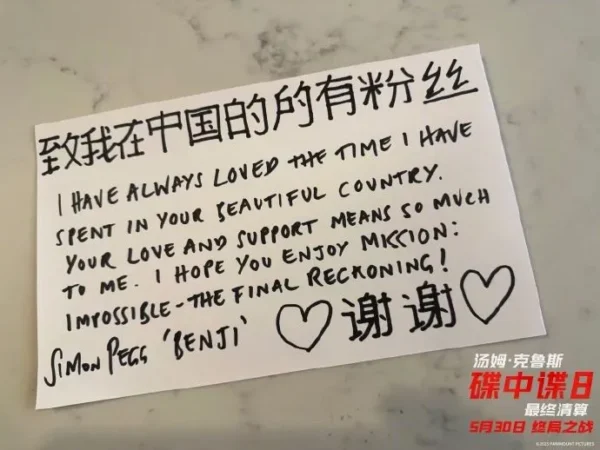 致我在中国的的有粉丝
I HAVE ALWAYS LOVED THE TIME I HAVE
SPENT IN YOUR BEAUTIFUL COUNTRY.
YOUR LOVE AND SUPPORT MEANS SO MUCH
TO ME. I HOPE YOU ENJOY MISSION:
IMPOSSIBLE - THE FINAL RECKONING!
SIMON PEGG 'BENJI' ♡ 谢谢 ♡
汤姆·克鲁斯
碟中谍8
最终清算
5月30日 终局之战
©2025 PARAMOUNT PICTURES